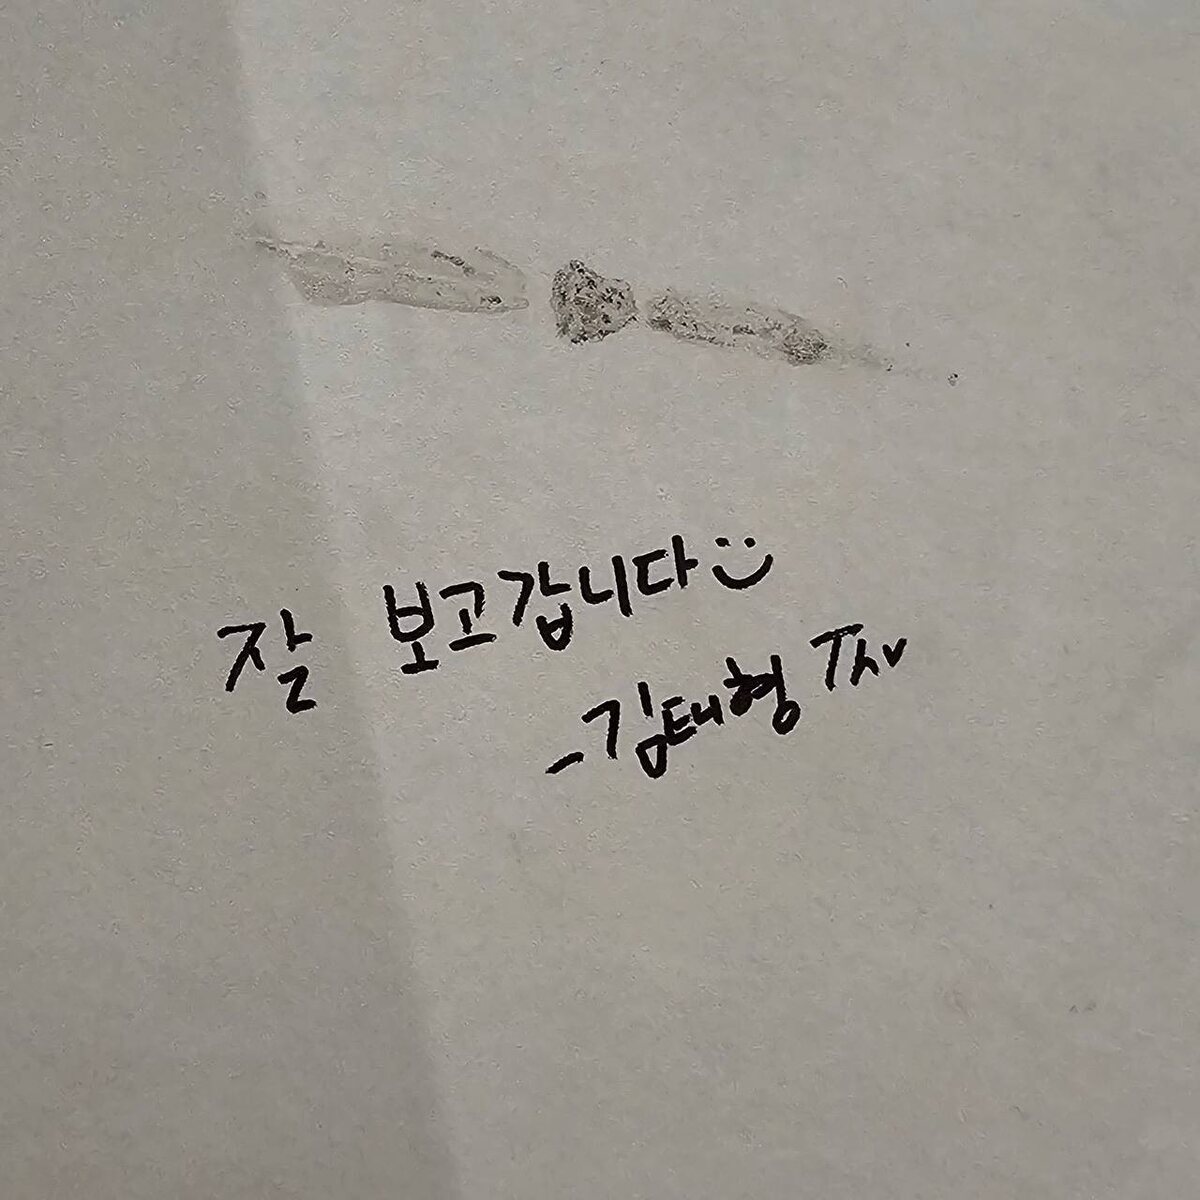 잘 보고갑니다
-김태형